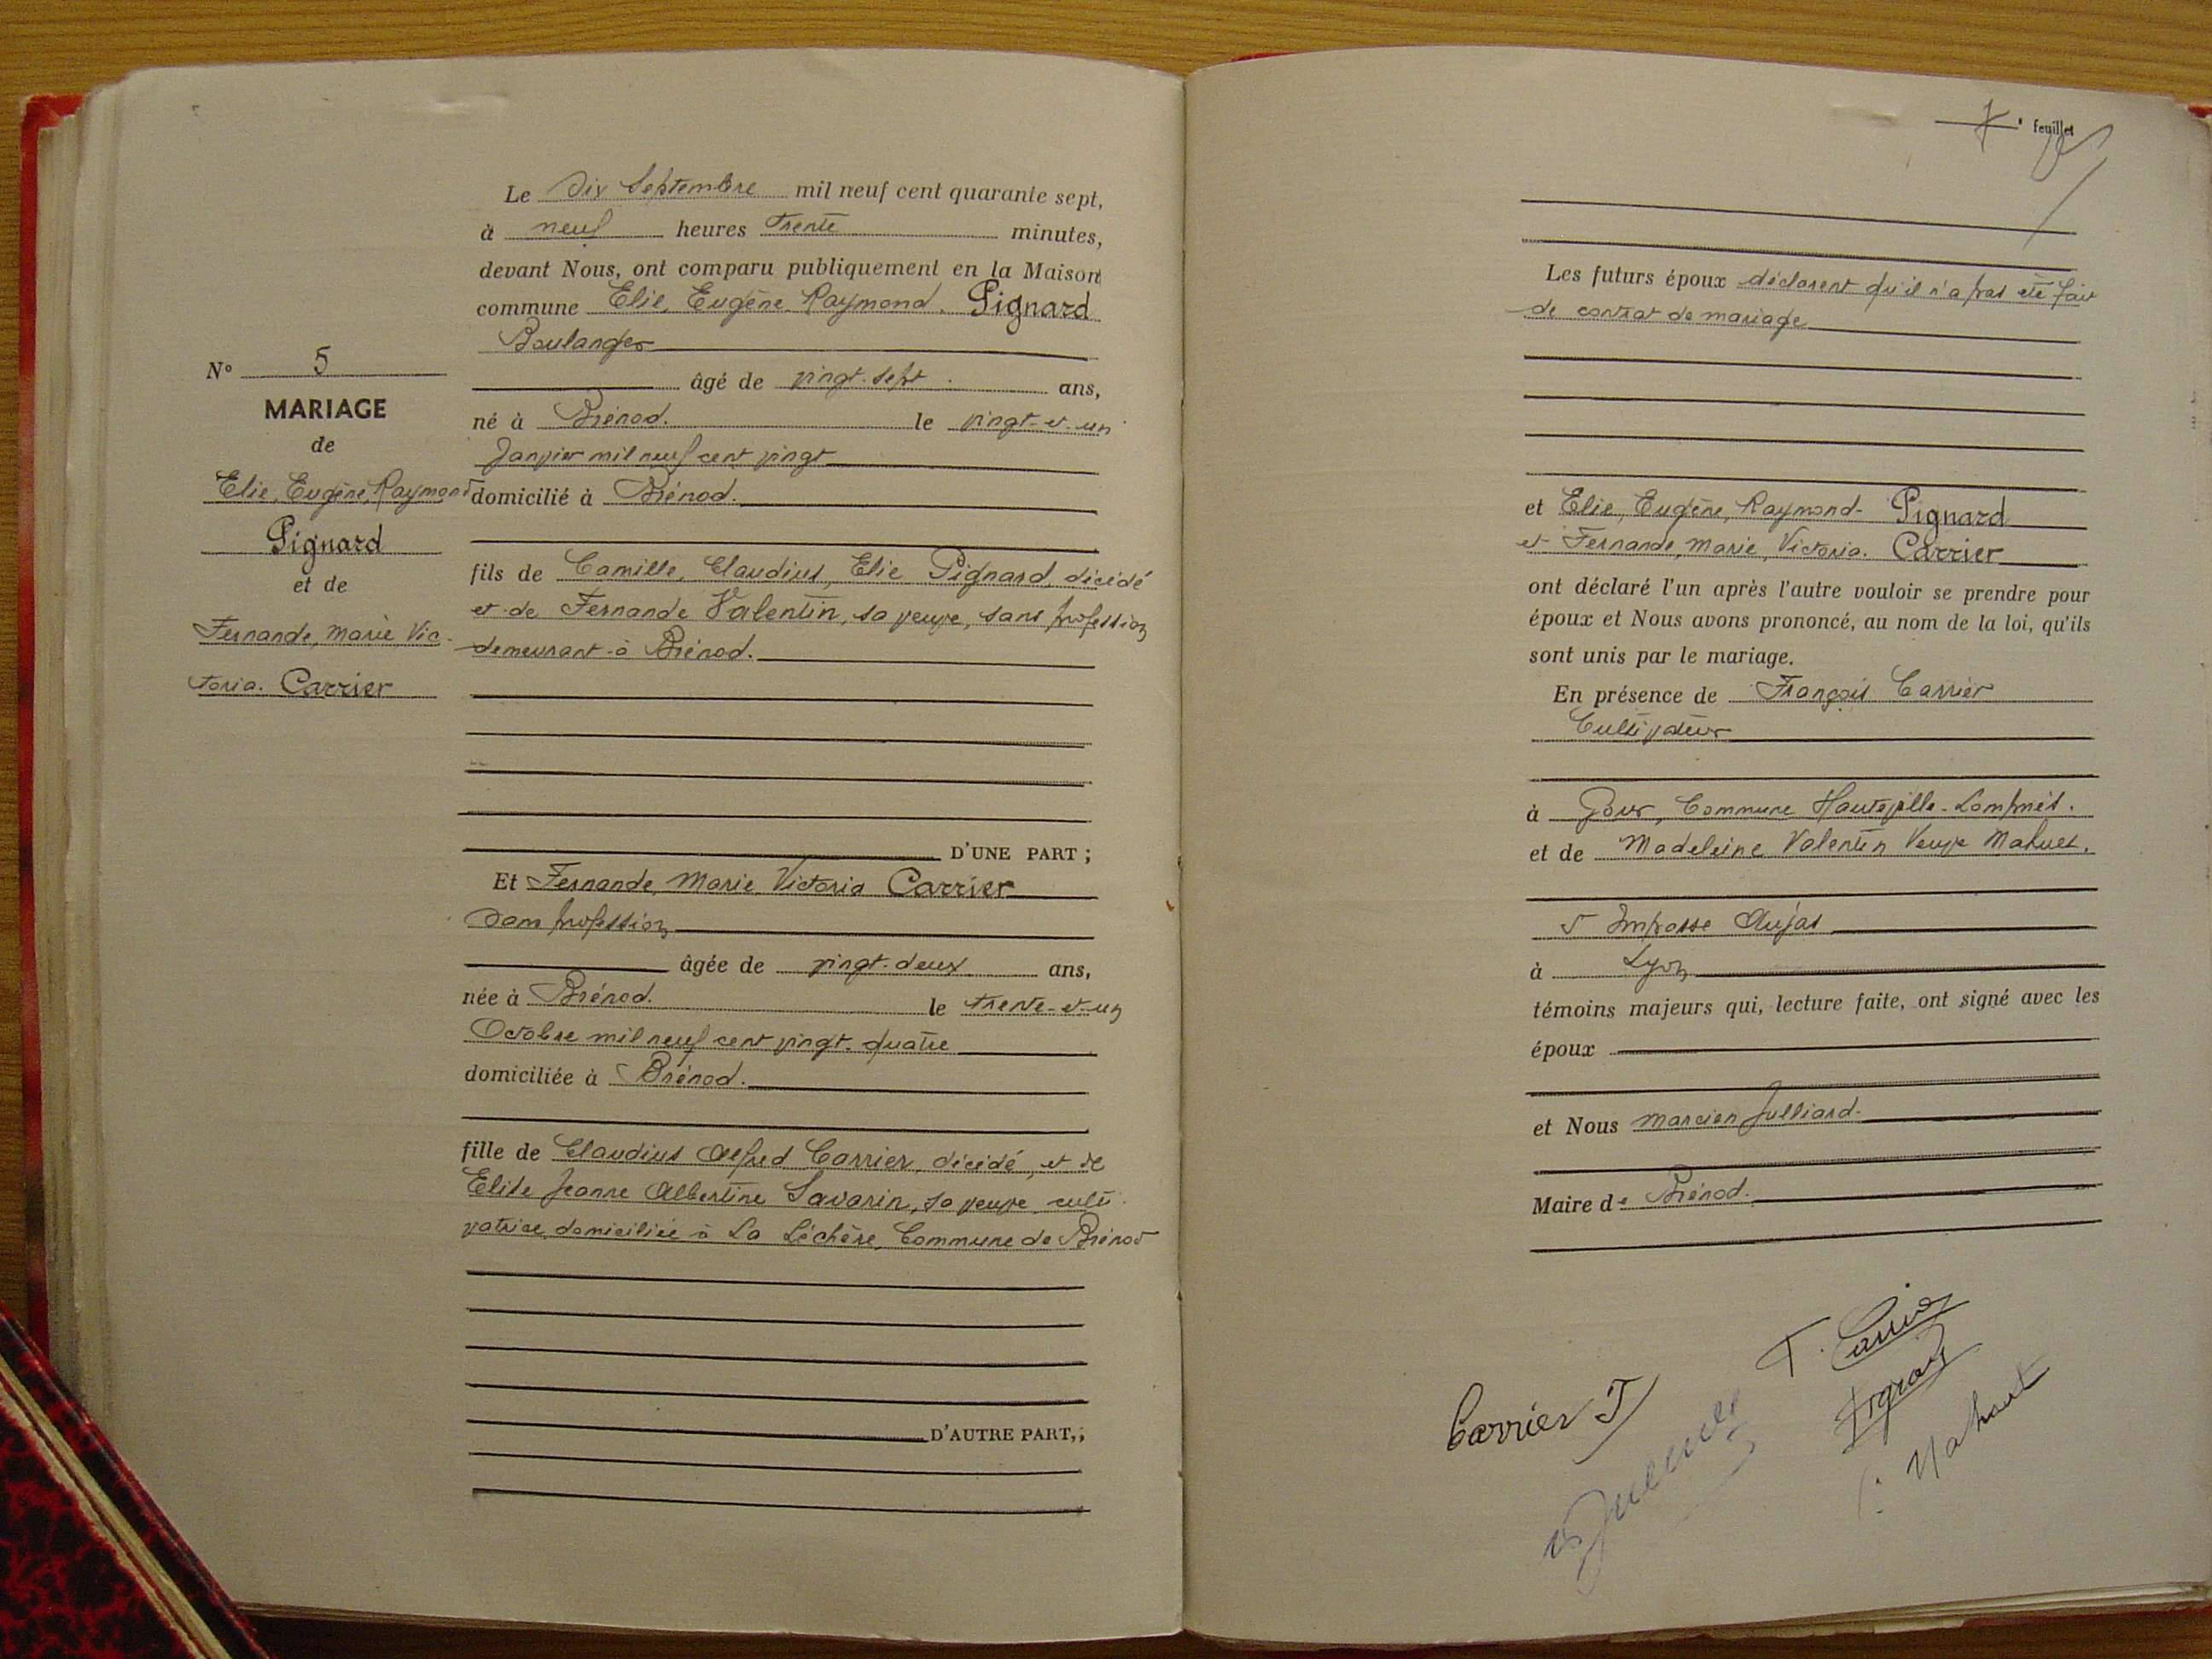 Le Dix Septembre mil neuf cent quarante sept,
à neuf heures trente minutes,
devant Nous, ont comparu publiquement en la Maison
commune Elie, Eugène Raymond. Pignard
Boulanger
âgé de vingt-sept ans,
né à Brénod. le vingt-et-un
Janvier mil neuf cent vingt
domicilié à Brénod.
fils de Camille, Claudius, Elie Pignard, décédé
et de Fernande Valentin, sa veuve, sans profession
demeurant à Brénod.
D'UNE PART ;
Et Fernande, Marie, Victoria Carrier
sans profession
âgée de vingt-deux ans,
née à Brénod. le trente-et-un
Octobre mil neuf cent vingt-quatre
domiciliée à Brénod.
fille de Claudius Alfred Carrier, décédé, et de
Elise Jeanne Albertine Savarin, sa veuve, culti-
vatrice domiciliée à La Léchère, Commune de Brénod
D'AUTRE PART,;
N° 5
MARIAGE
de
Elie, Eugène, Raymond
Pignard
et de
Fernande, Marie Vic-
toria. Carrier
7 e feuillet
Les futurs époux déclarent qu'il n'a pas été fait
de contrat de mariage
et Elie, Eugène, Raymond- Pignard
et Fernande, Marie, Victoria. Carrier
ont déclaré l'un après l'autre vouloir se prendre pour
époux et Nous avons prononcé, au nom de la loi, qu'ils
sont unis par le mariage.
En présence de François Carrier
Cultivateur
à Commune Hauteville-Lompnès.
et de Madeleine Valentin Veuve
5 Impasse Aujas
à Lyon
témoins majeurs qui, lecture faite, ont signé avec les
époux
et Nous Marcien Julliard.
Maire de Brénod.
F. Carrier
Carrier F
Pignard